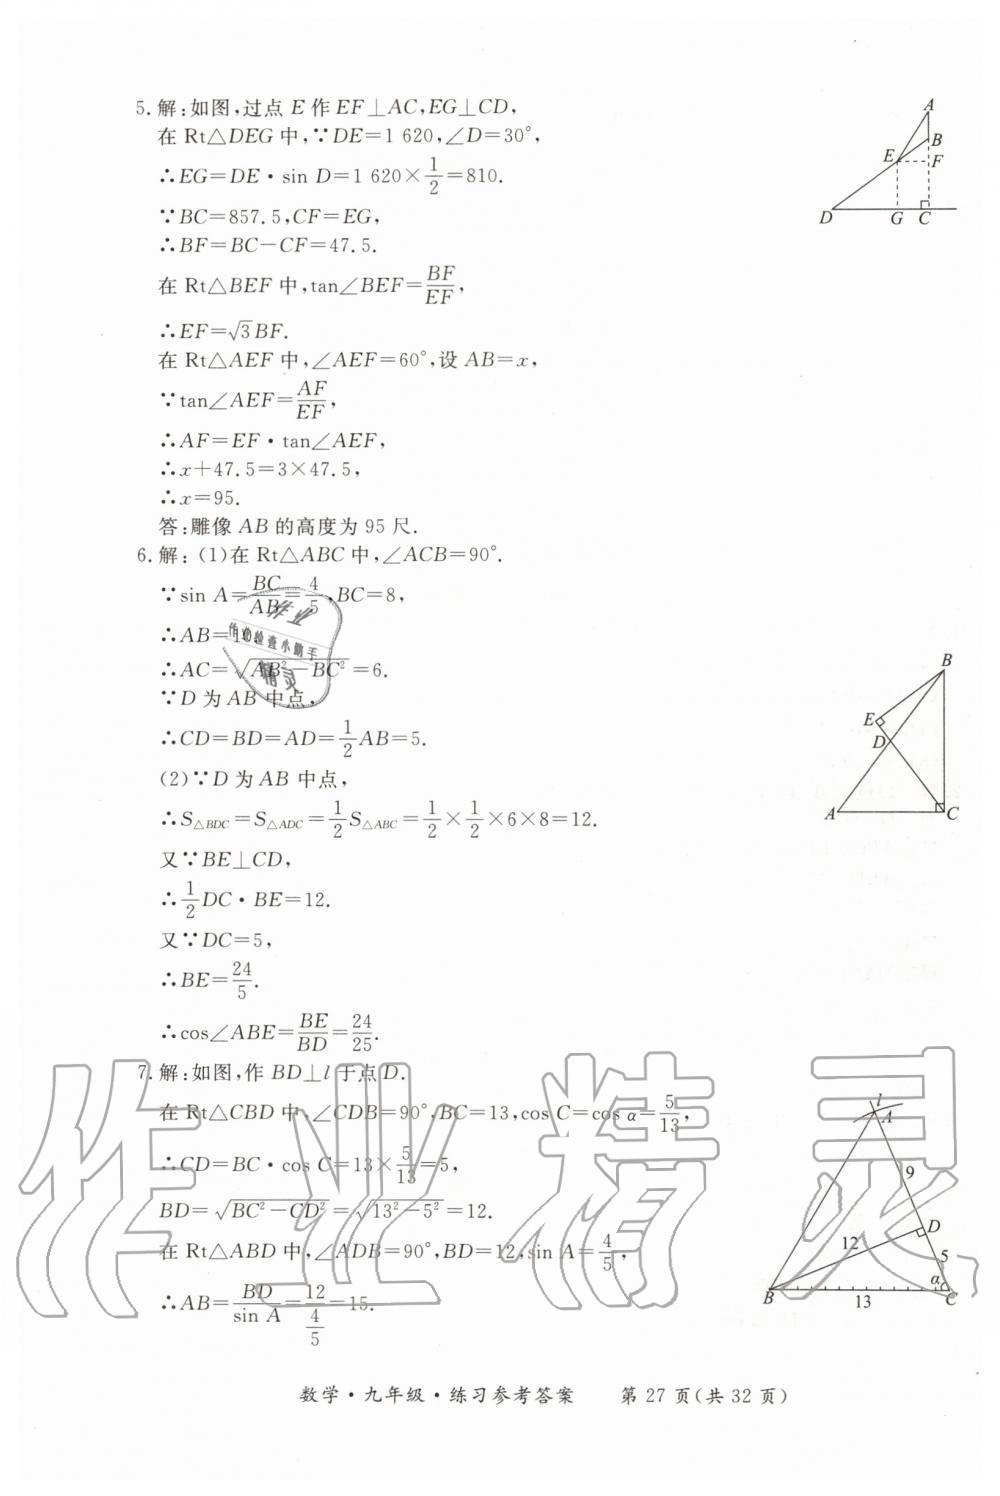 5. 解:如图,过点 E 作 EF⊥AC,EG⊥CD,
在 Rt△DEG 中,∵DE=1 620,∠D=30°,
∴EG=DE·sin D=1 620×1/2=810.
∵BC=857.5,CF=EG,
∴BF=BC-CF=47.5.
在 Rt△BEF 中,tan∠BEF=BF/EF,
∴EF=√3BF.
在 Rt△AEF 中,∠AEF=60°,设 AB=x,
∵tan∠AEF=AF/EF,
∴AF=EF·tan∠AEF,
∴x+47.5=3×47.5,
∴x=95.
答:雕像 AB 的高度为 95 尺.
A
B
E
F
D
G
C
6. 解:(1)在 Rt△ABC 中,∠ACB=90°.
∵sin A=BC/AB=4/5,BC=8,
∴AB=10
∴AC=√(AB²-BC²)=6.
∵D 为 AB 中点,
∴CD=BD=AD=1/2AB=5.
(2)∵D 为 AB 中点,
∴S△BDC=S△ADC=1/2S△ABC=1/2×1/2×6×8=12.
又∵BE⊥CD,
∴1/2DC·BE=12.
又∵DC=5,
∴BE=24/5.
∴cos∠ABE=BE/BD=24/25.
B
E
D
A
C
7. 解:如图,作 BD⊥l 于点 D.
在 Rt△CBD 中,∠CDB=90°,BC=13,cos C=cos α=5/13,
∴CD=BC·cos C=13×5/13=5,
BD=√(BC²-CD²)=√(13²-5²)=12.
在 Rt△ABD 中,∠ADB=90°,BD=12,sin A=4/5,
∴AB=BD/sin A=12/(4/5)=15.
l
A
9
D
12
5
α
B
13
C
作业精灵
作业检查小帮手
数学·九年级·练习参考答案 第 27 页(共 32 页)